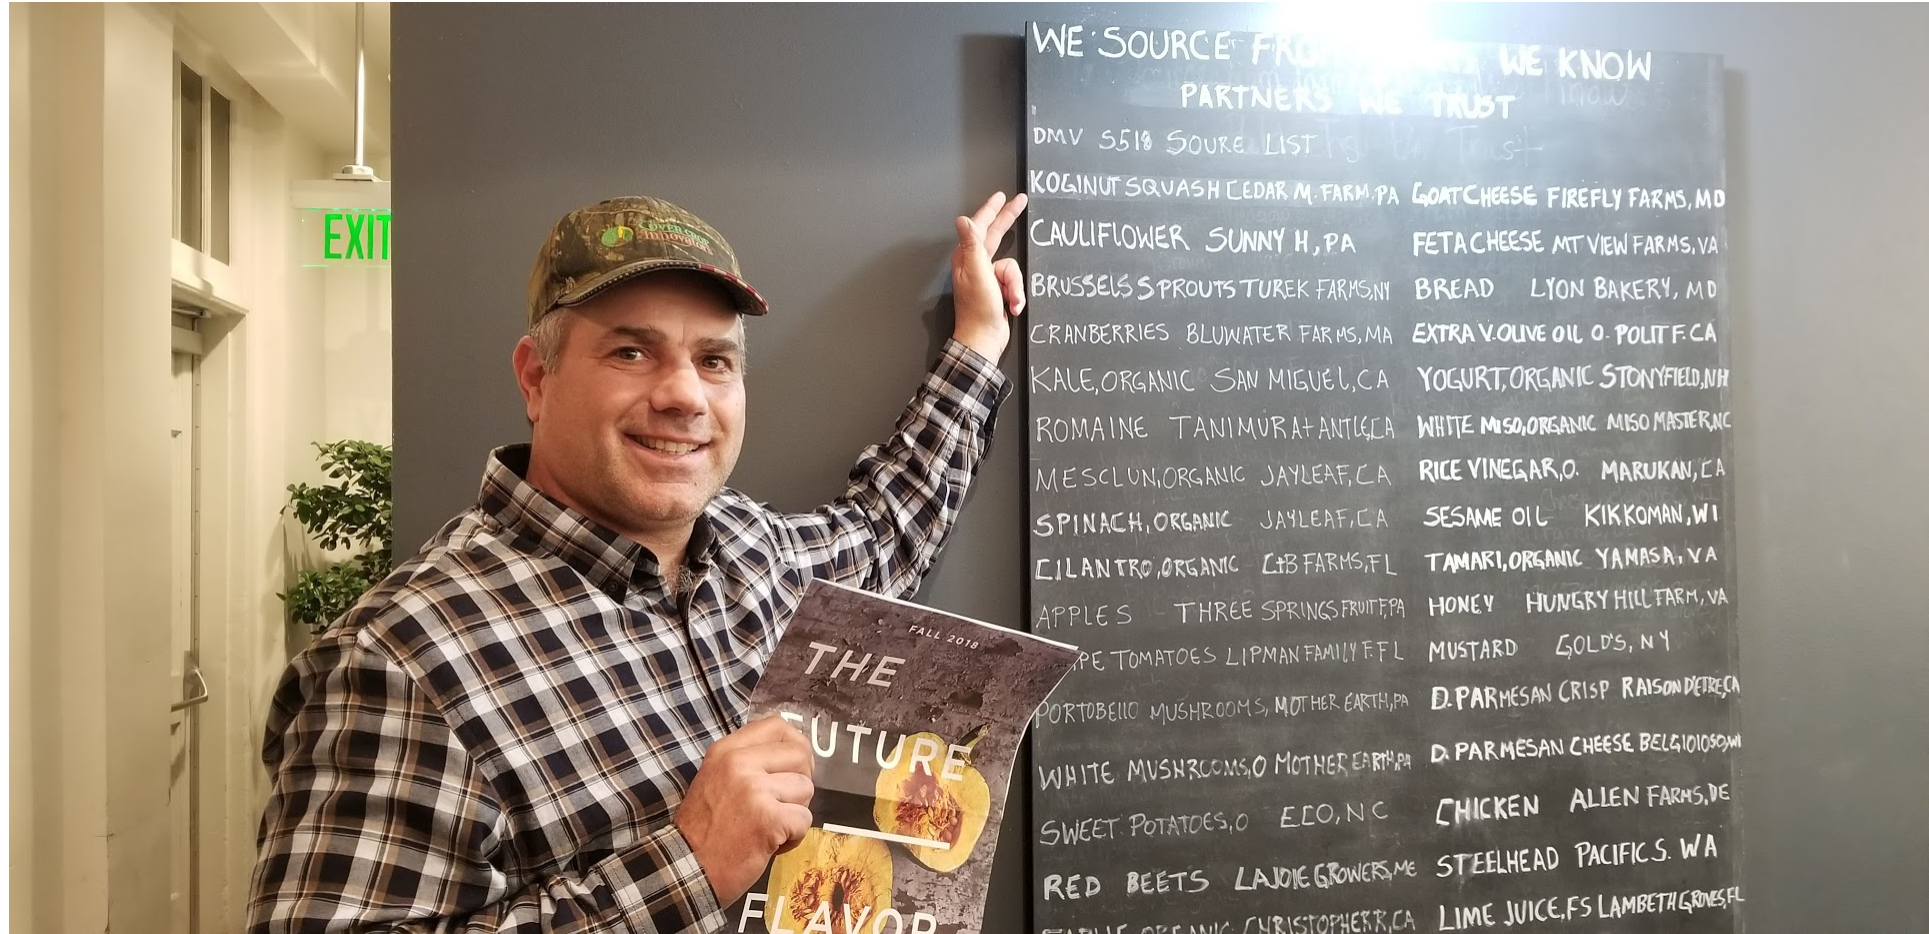 EXIT
COVER CROP
Innovator
FALL 2018
THE
FUTURE
FLAVOR
WE SOURCE WE KNOW
PARTNERS WE TRUST
DMV S518 SOURE LIST
KOGINUT SQUASH CEDAR M. FARM, PA
CAULIFLOWER SUNNY H, PA
BRUSSELS SPROUTS TUREK FARMS, NY
CRANBERRIES BLUWATER FARMS, MA
KALE, ORGANIC SAN MIGUEL, CA
ROMAINE TANIMURA + ANTLE, CA
MESCLUN, ORGANIC JAYLEAF, CA
SPINACH, ORGANIC JAYLEAF, CA
CILANTRO, ORGANIC C+B FARMS, FL
APPLES - THREE SPRINGS FRUIT F, PA
TOMATOES LIPMAN FAMILY F. FL
PORTOBELLO MUSHROOMS, MOTHER EARTH, PA
WHITE MUSHROOMS, O MOTHER EARTH, PA
SWEET POTATOES, O ECO, NC
RED BEETS LAJOIE GROWERS, ME
ORGANIC CHRISTOPHER R, CA
GOAT CHEESE FIREFLY FARMS, MD
FETA CHEESE MT VIEW FARMS, VA
BREAD LYON BAKERY, MD
EXTRA V. OLIVE OIL O. POLIT F. CA
YOGURT, ORGANIC STONYFIELD, NH
WHITE MISO, ORGANIC MISO MASTER, NC
RICE VINEGAR, O. MARUKAN, CA
SESAME OIL KIKKOMAN, WI
TAMARI, ORGANIC YAMASA, VA
HONEY HUNGRY HILL FARM, VA
MUSTARD GOLD'S, NY
D. PARMESAN CRISP RAISON D'ETRE, CA
D. PARMESAN CHEESE BELGIOIOSO, WI
CHICKEN ALLEN FARMS, DE
STEELHEAD PACIFIC S. WA
LIME JUICE, FS LAMBETH GROVES, FL